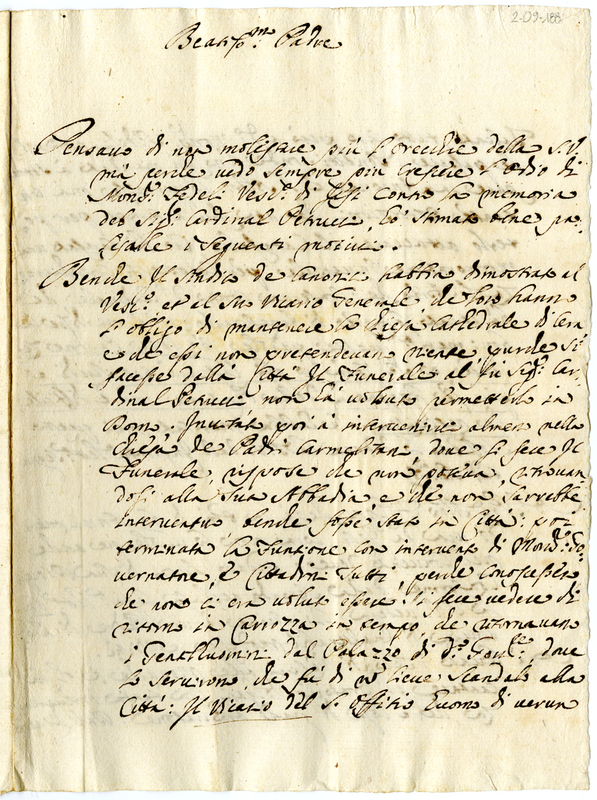 2-09-188
Beatis.mo Padre
Pensavo di non molestare più l'orecchie della S.V.
mà perche vedo sempre più crescere l'odio di
Mons.r Fedeli Vesc.o di Jesi contro la memoria
del Sig.r Cardinal Petrucci, hò stimato bene pa-
lesarle i seguenti motivi.
Benche Il Sindico de Canonici habbia dimostrato al
Vesc.o et al suo Vicario Generale che loro hanno
l'obligo di mantenere la Chiesa Cathedrale di Cera
e che essi non pretendevan niente, purche si
facesse dalla Città Il Funerale al fu Sig.r Car-
dinal Petrucci non hà voluto permetterlo in
Domo. Invitato poi à intervenire almeno nella
Chiesa de Padri Carmelitani, dove si fece Il
Funerale, rispose che non poteva, ritrovan
dosi alla sua Abbadia e che non sarrebbe
intervenuto, benche fosse stato in Città: poi
terminata la Funzione con intervento di Mons.r Go-
vernatore, e Cittadini tutti, perche conoscessero
che non ci era voluto essere si fece vedere di
ritorno in Carrozza in tempo, che ritornavano
i Gentilhuomini dal Palazzo di d.o Gov.re, dove
lo servirono, che fù di non lieve scandalo alla
Città: Il Vicario del S. Offitio Huomo di verun